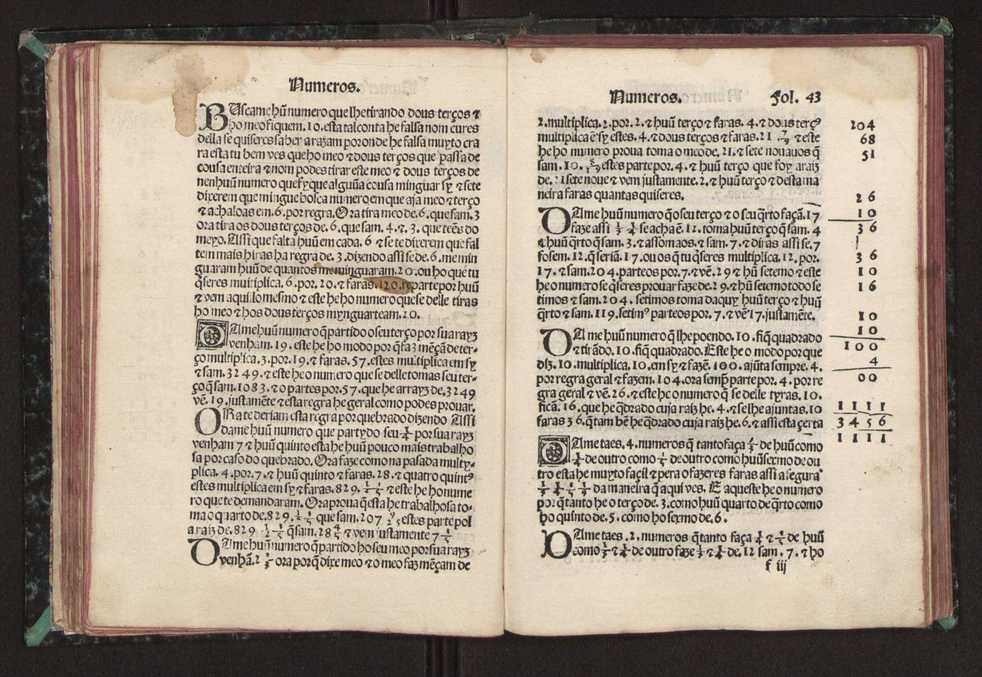 Numeros.
BUscame hũ numero que lhe tirando dous terços ⁊
ho meo fiquem.10.esta tal conta he falsa nom cures
della se quiseres saber a razam por onde he falsa muyto cra
ra esta tu bem ves que ho meo ⁊ dous terços que passa de
cousa enteira ⁊ nom podes tirar este meo ⁊ dous terços de
nenhuũ numero que fyque algũa cousa minguar sy ⁊ sete
dixerem que mingue bosca numero em que aja meo ⁊ terço
⁊ achaloas em.6.por regra.Ora tira meo de.6.que sam.3
ora tira os dous terços de.6.que sam.4.⁊.3.que teẽs do
meyo.Assi que falta huũ em cada.6.⁊ se te dixerem que fal
tem mais hiras ha regra de.3.dizendo assi se de.6.me min
guaram huũ de quantos me minguaram.20.ou ho que tu
q̃seres multiplica.6.por.20.⁊ faras.120.parte por huũ
⁊ vem aqui lo mesmo ⁊ este he ho numero que se delle tiras
ho meo ⁊ hos dous terços mynguarteam.20.
DAlme huũ numero q̃ partido o seu terço por sua rayz
venham.19.este he ho modo por q̃ faz mẽçã de ter-
ço multiplica.3.por.19.⁊ faras.57.estes multiplica em sy
⁊ sam 3249.⁊ este he o numero que se delle tomas seu ter-
ço q̃ sam.1083.⁊ o partes por.57.que he a rayz de.3249
vẽ.19.justamẽte ⁊ esta regra he geral como podes prouar.
ORa te deriam esta regra por quebrado dizendo Assi
dame huũ numero que partydo seu ¼ por sua rayz
venham 7 ⁊ huũ quinto esta he huũ pouco mais trabalho
sa por caso do quebrado.Ora faze como na pasada multy-
plica.4.por.7.⁊ huũ quinto ⁊ faras.28.⁊ quatro quint⁹
estes multiplica em sy ⁊ faras.829. ⁊ este he ho nume
ro que te demandaram.Ora proua q̃ esta he trabalhosa to-
ma o quarto de.829. que sam.207 estes parte pol
a raiz de.829 q̃ sam.28 ⅘ ⁊ vem justamente 7 ⅕
DAlme huũ numero q̃ partido ho seu meo por sua rayz
venhã.2 ⅓ ora por q̃ dixe meo ⁊ o meo faz mẽçam de
Numeros. Fol. 43
2.multiplica.2.por.2.⁊ huũ terço ⁊ faras.4.⁊ dous terç⁹
multiplica ẽ sy estes.4.⁊ dous terços ⁊ faras.21 7/9 ⁊ este
he ho numero proua toma o meo de.21.⁊ sete nouauos q̃
sam.10. estes parte por.4.⁊ huũ terço que foy a raiz
de. sete noue ⁊ vem justamente.2.⁊ huũ terço ⁊ desta ma
neira faras quantas quiseres.
DAlme huũ numero q̃ o seu terço ⁊ o seu q̃rto façã.17
faze assi ⅓ ¼ se acha ẽ.12.toma huũ terço q̃ sam.4
⁊ huũ q̃rto q̃ sam.3.⁊ assomaos.⁊ sam.7.⁊ diras assi se.7
fosem.12.q̃ seriã.17.ou os q̃ tu q̃seres multiplica.12.por.
17.⁊ sam.204.parteos por.7.⁊ vẽ.29 ⁊ hũ setemo ⁊ este
he o numero se q̃seres prouar faze de.29.⁊ hũ setemo todo se
timos ⁊ sam.204.setimos toma daquy huũ terço ⁊ huũ
q̃rto ⁊ sam.119.setim⁹ parteos por.7.⁊ vẽ 17.justamẽte.
DAl me huũ numero q̃ lhe poendo.10.fiq̃ quadrado
⁊ tirãdo.10.fiq̃ quadrado.Este he o modo por que
diz.10.multiplica.10.em sy ⁊ fazẽ.100.ajũta sempre.4.
por regra geral ⁊ fazem.104.ora semp̃ parte por.4.por re
gra geral ⁊ vẽ.26.⁊ este he o numero q̃ se delle tyras.10.
ficã.16.que he q̃drado cuja raiz he.4.⁊ se lhe ajuntas.10
faras 36 q̃ tam bẽ he q̃drado cuja raiz he.6.⁊ assi esta çerta
DAlme taes.4.numeros q̃ tanto faça ⅓ de huũ como
¼ de outro como ⅕ de outro como huũ sexmo de ou
tro esta he muyto façil ⁊ pera o fazeres faras assi a segura
⅓ ¼ ⅕ ⅙ da maneira q̃ aqui ves.E aqueste he o numero
por q̃ tanto he o terço de.3.como huũ quarto de q̃rto como
ho quinto de.5.como ho sexmo de.6.
DAlme taes.2.numeros q̃ tanto faça ⅓ ⁊ ¼ de huũ
como ⅓ ⁊ ¼ de outro faze ⅓ ⁊ ¼ de.12 sam.7.⁊ ho
f iij
204
68
51
26
10
36
36
10
16
10
10
100
4
00
1111
3456
1111